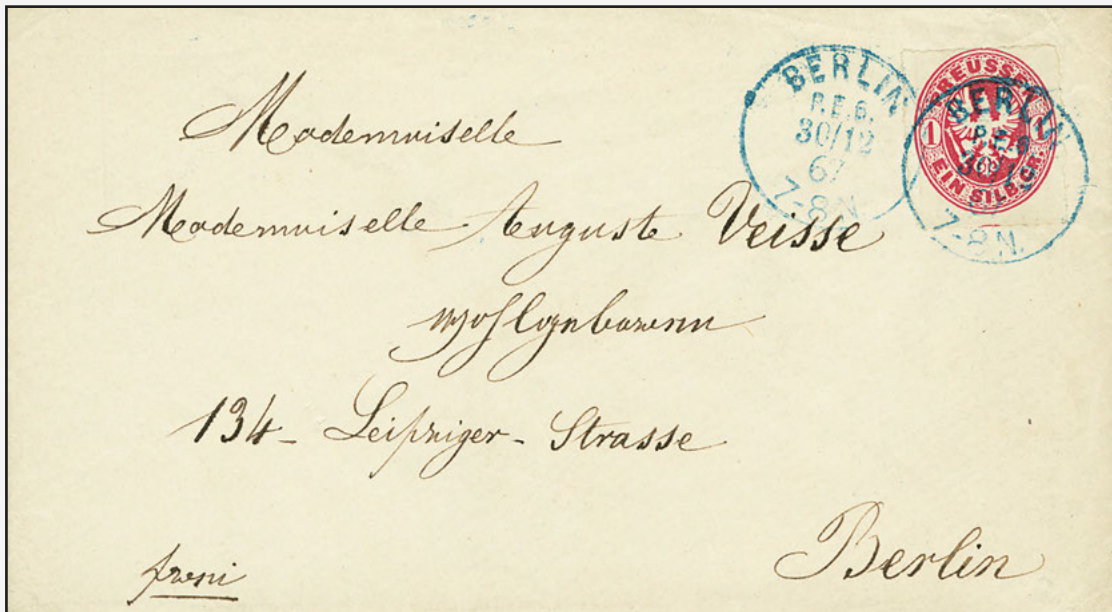 BERLIN
P.E.6.
30/12
67
7-8N.
PREUSSEN
1 1
EIN SILB.GR.
BERLIN
P.E.6
7-8N.
Mademoiselle
Mademoiselle Auguste Veisse
134- Leipziger-Strasse
Berlin